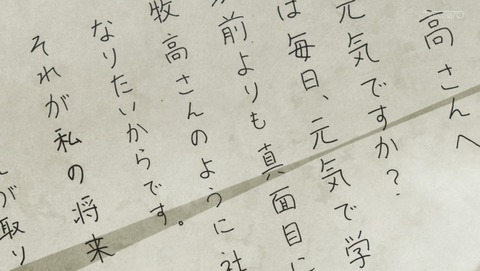 高さんへ
元気ですか?
は毎日、元気で学
前よりも真面目に
牧高さんのように社
なりたいからです。
それが私の将来
が取り